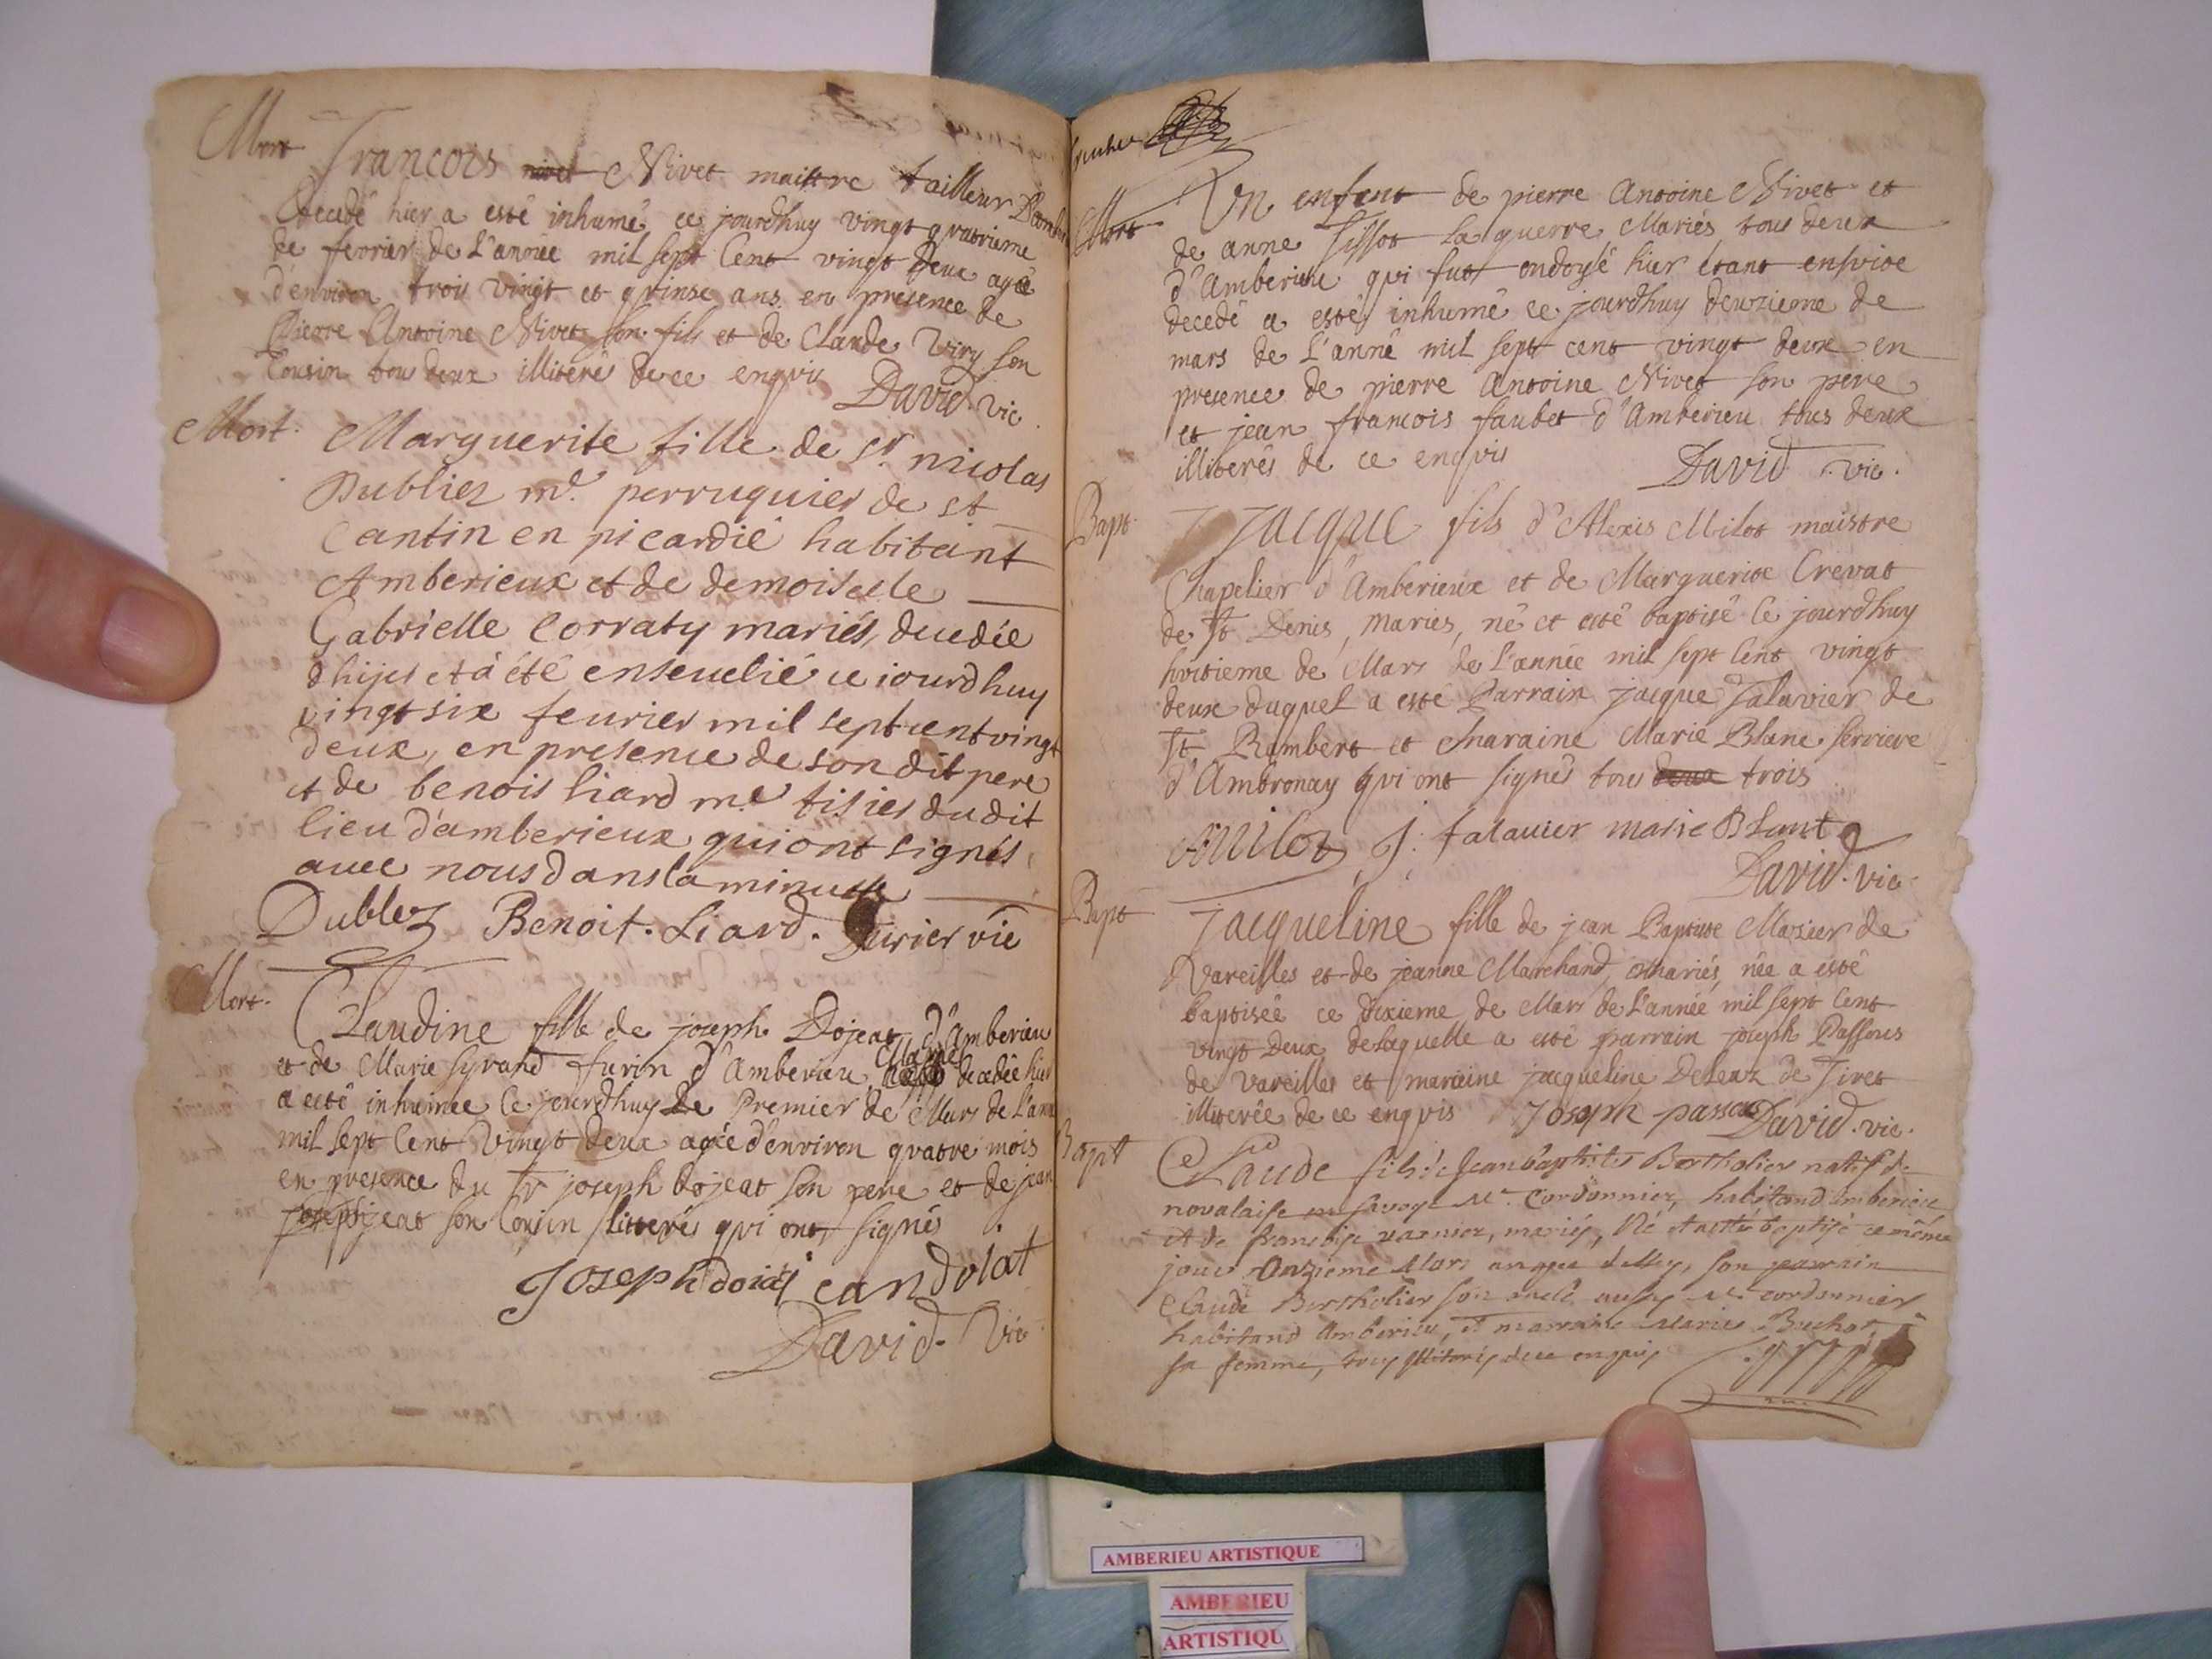 Mort
Francois nivet Nivet maistre tailleur
decedé hier a esté inhumé ce jourdhuy vingt quatrieme
de fevrier de L'année mil sept Cent vingt Deux agé
d'environ trois vingt et quinse ans en presence de
Pierre Antoine Nivet son fils et de Claude Viry son
Cousin tou deux illiteré de ce enquis David. vic.
Mort.
Marguerite fille de sr nicolas
Dubliez md. perruquier de st
Cantin en picardie habitant
Amberieux et de demoiselle
Gabrielle Corraty mariés, decedée
dhijer et a été enseuelié ce iourdhuy
vingt six feurier mil sept cent vingt
deux, en presence de son dit pere
et de benois liard me tisier du dit
lieu d'amberieux qui ont signés
auec nous dans la minutte
Dublez Benoit. Liard. vic
Mort.
Claudine fille de joseph Dojeat d'Amberieu
et de Marie Syrand furin d'Amberieu Mariés decedée hier
a esté inhumée Ce jourdhuy Le Premier de Mars de L'ann
mil sept Cent Vingt deux agée d'environ quatre mois
en presence du Sr joseph dojeat son pere et de jean
son Cousin litterés qui ont signés
Joseph doiat jean doiat
David. Vic
Mort
Un enfent de pierre Antoine Nivet et
de anne Tissot La guerre Mariés tous deux
d'Amberieu qui fut ondoyé hier etant ensuite
decedé a esté inhumé ce jourdhuy deuzieme de
mars de L'anné mil sept cent vingt deux en
presence de pierre Antoine Nivet son pere
et jean francois faubet d'Amberieu tous deux
illiterés de ce enquis David. vic.
Bapt.
Jacque fils d'Alexis Milot maistre
Chapelier d'Amberieux et de Marguerite Crevat
de St Denis, mariés, né et esté baptisé Ce jourdhuy
huitieme de Mars de L'année mil sept Cent vingt
deux duquel a esté Parrain jacque Talavier de
St Rambert et Maraine Marie Blanc
d'Ambronay qui ont signés tous deux trois
AMilot J. talauier marie Blant
David. vic.
Bapt
Jacqueline fille de jean Baptiste Masier de
Vareilles et de jeanne Marchand, Mariés, née a esté
baptisée ce Dixieme de Mars de L'année mil sept Cent
vingt Deux de laquelle a esté parrain joseph Passous
de Vareilles et maraine jacqueline Deleaz de Tiret
illiterée de ce enquis Joseph David. vic.
Bapt
Claude fils de Jean baptiste Bertholier natif de
novalaise en savoye Me. Cordonnier, habitand Amberieu
Et de francoise varnier, mariés, Né et a esté baptisé ce même
jour Onzieme Mars an que dessus, son parrain
Claude Bertholier son oncle aussy Me cordonnier
habitand Amberieu, et marraine Marie Buchot
sa femme, tous illiterés de ce enquis
AMBERIEU ARTISTIQUE
AMBERIEU
ARTISTIQU